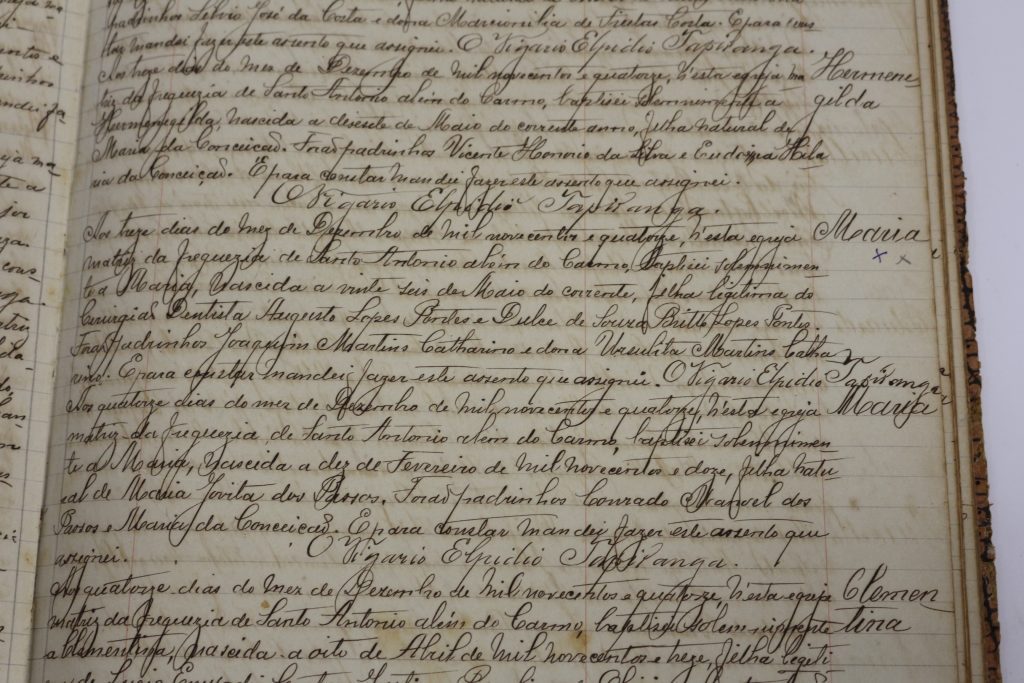 padrinhos Silvio José da Costa e dona Marcionilia de Freitas Costa. E para cons
tar mandei fazer este assento que assignei. O Vigario Elpidio Tapiranga.
Aos treze dias do mez de Dezembro de mil novecentos e quatorze, n'esta egreja ma
triz da freguezia de Santo Antonio além do Carmo, baptisei solemnimente a
Hermenegilda, nascida a desesete de Maio do corrente anno, filha natural de
Maria da Conceição. Forão padrinhos Vicente Honorio da Silva e Eudoxia Hila
ria da Conceição. E para constar mandei fazer este assento que assignei.
O Vigario Elpidio Tapiranga.
Hermene
gilda
Aos treze dias do mez de Dezembro de mil novecentos e quatorze, n'esta egreja
matriz da freguezia de Santo Antonio além do Carmo, baptisei solemnimen
te a Maria, nascida a vinte seis de Maio do corrente, filha legitima do
Cirurgião Dentista Augusto Lopes Pontes e Dulce de Souza Britto Lopes Pontes.
Forão padrinhos Joaquim Martins Catharino e dona Ursulita Martins Catha
rino. E para constar mandei fazer este assento que assignei. O Vigario Elpidio Tapiranga
Maria
x x
Aos quatorze dias do mez de Dezembro de mil novecentos e quatorze, n'esta egreja
matriz da freguezia de Santo Antonio além do Carmo, baptisei solemnimen
te a Maria, nascida a dez de Fevereiro de mil novecentos e doze, filha natu
ral de Maria Jovita dos Passos. Forão padrinhos Conrado Manoel dos
Passos e Maria da Conceição. E para constar mandei fazer este assento que
assignei. O Vigario Elpidio Tapiranga.
Maria
Aos quatorze dias do mez de Dezembro de mil novecentos e quatorze, n'esta egreja
matriz da freguezia de Santo Antonio além do Carmo, baptisei solemnimente
a Clementina, nascida a oito de Abril de mil novecentos e treze, filha legiti
Clemen
tina